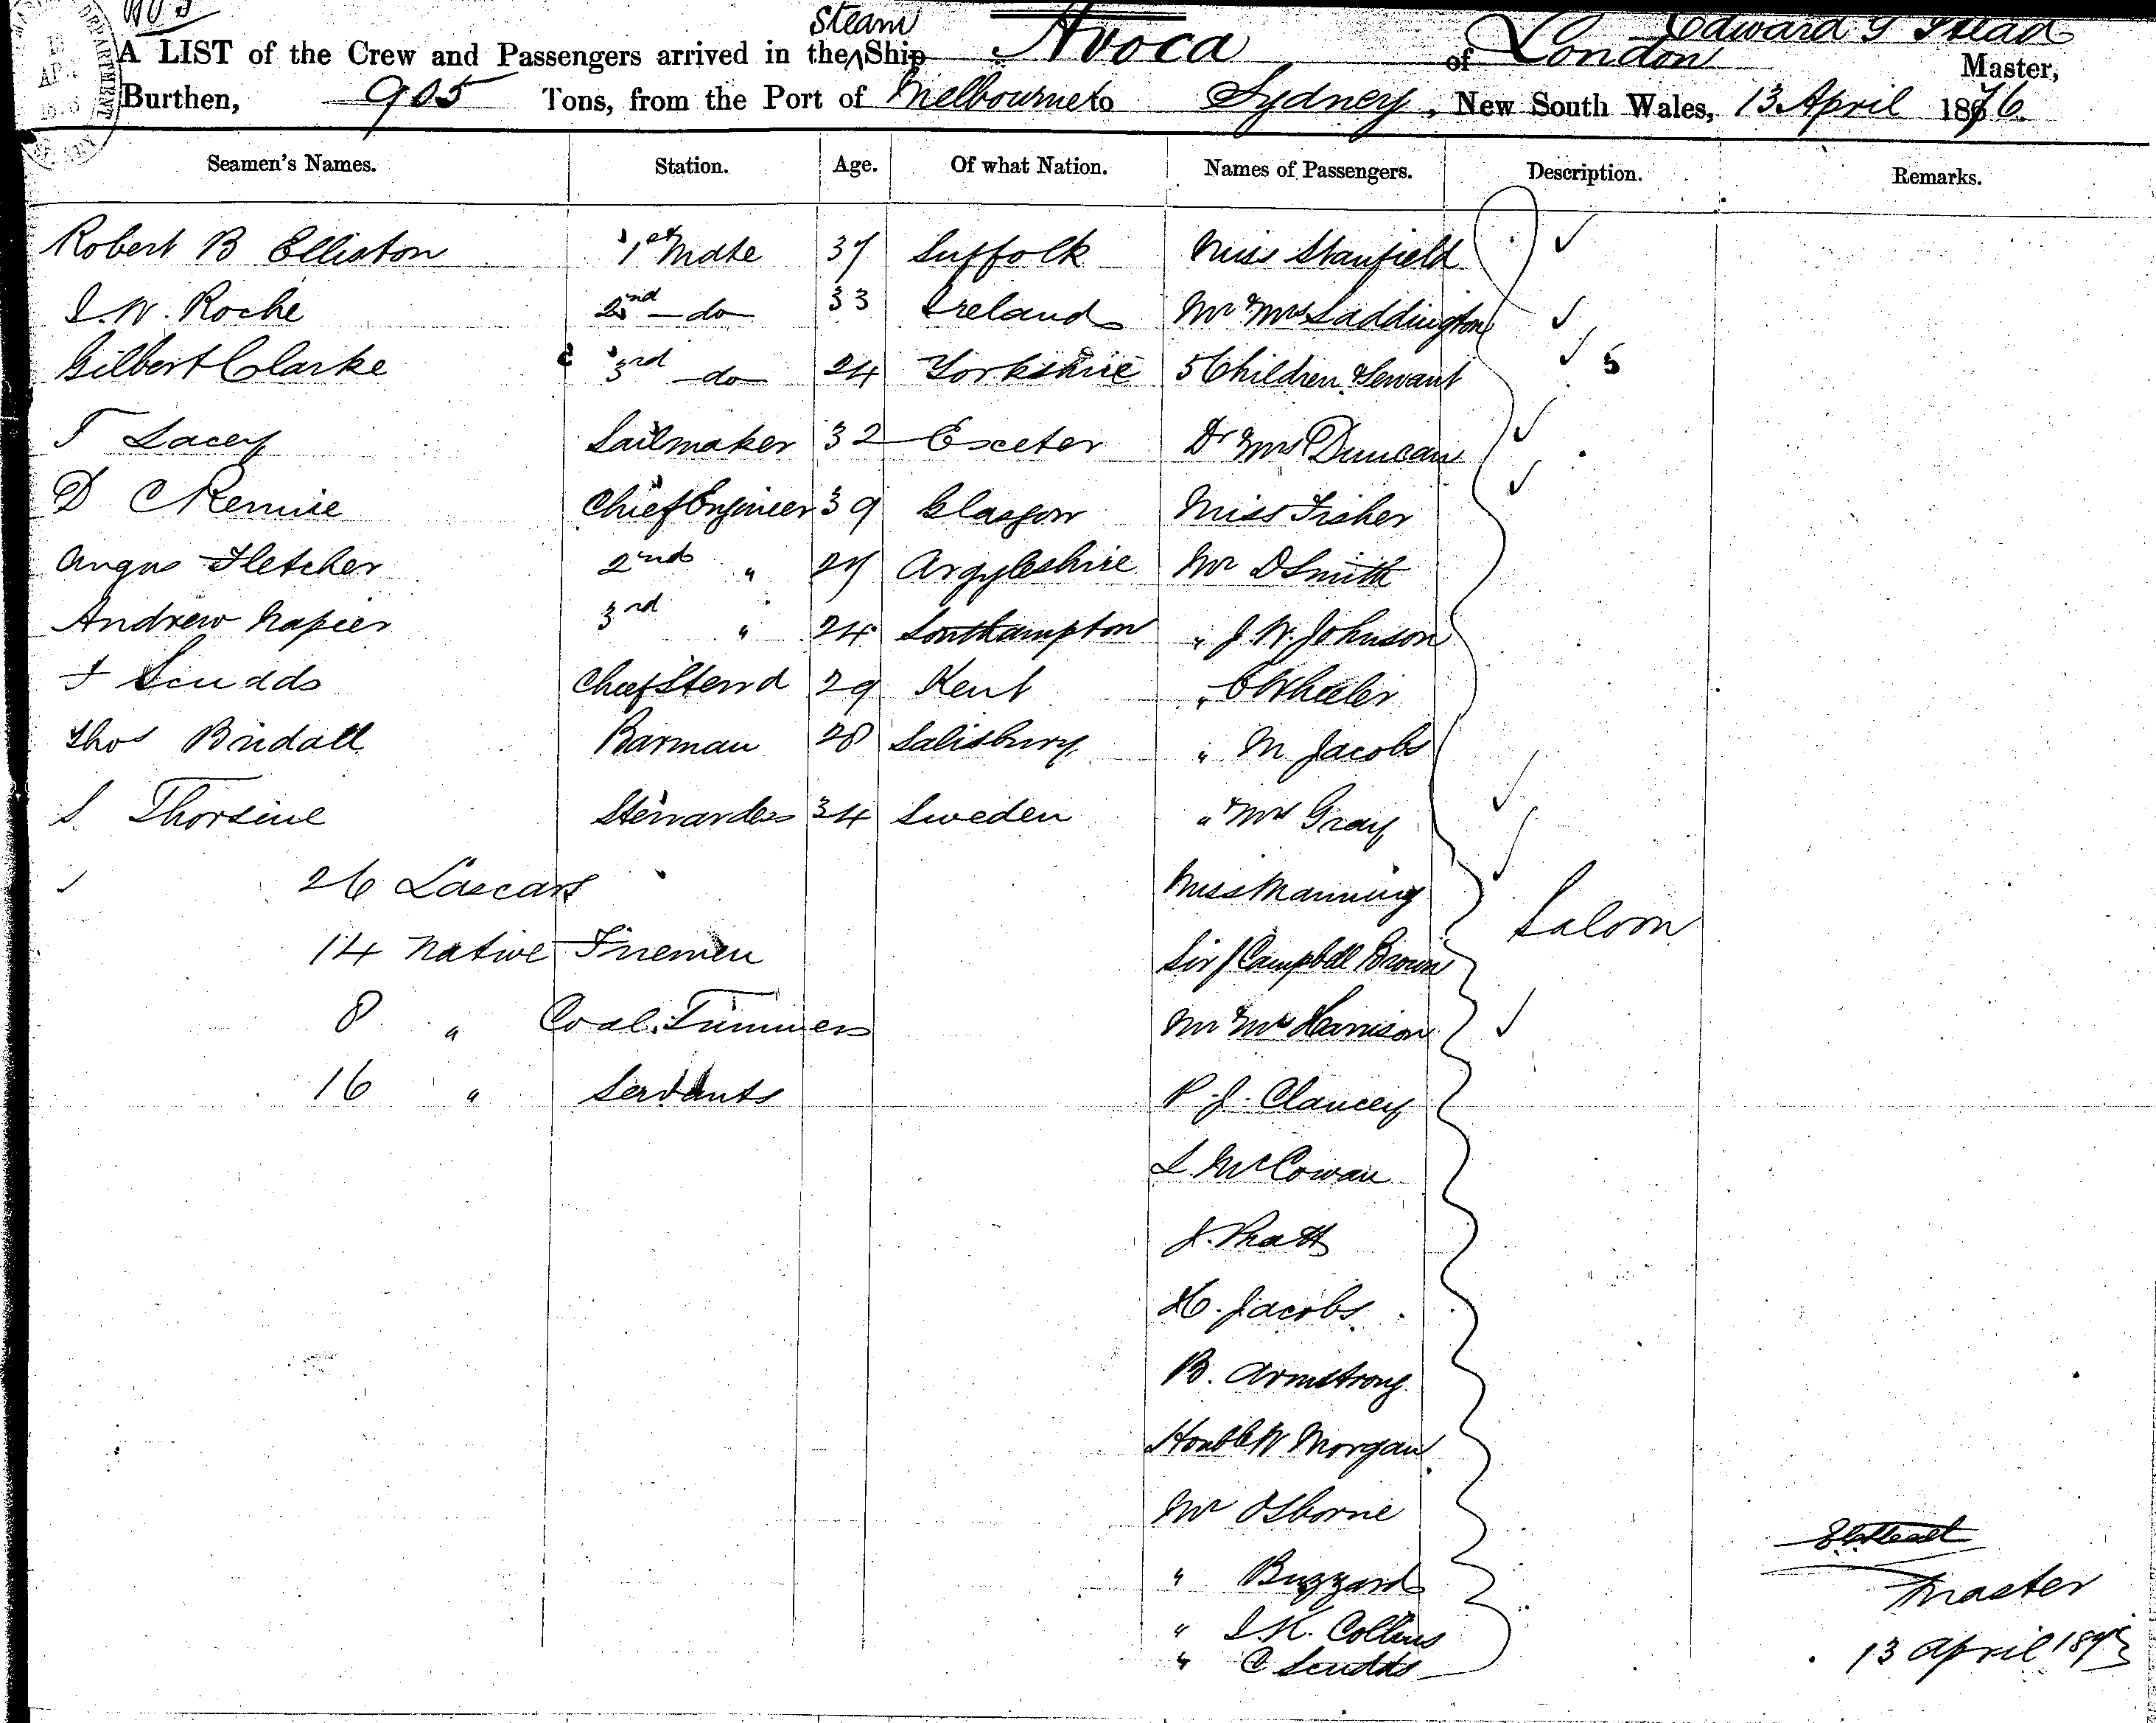 Steam
A LIST of the Crew and Passengers arrived in the ^ Ship Avoca of London Edward G Stead Master,
Burthen, 905 Tons, from the Port of Melbourne to Sydney, New South Wales, 13 April 1876.
Seamen's Names. Station. Age. Of what Nation. Names of Passengers. Description. Remarks.
Robert B Elliston 1st Mate 37 Suffolk Miss Stanfield
J. W. Roche 2nd do 33 Ireland Mr & Mrs Saddington
Gilbert Clarke 3rd do 24 Yorkshire 5 Children & Servant 5
T Lacey Sailmaker 32 Exeter Dr & Mrs Duncan
D C Rennie Chief Engineer 39 Glasgow Miss Fisher
Angus Fletcher 2nd " 27 Argyleshire Mr D Smith
Andrew Napier 3rd " 24 Southampton " J. W. Johnson
F Scudds Chief Stewd 29 Kent " C Wheeler
Thos Bridall Barman 28 Salisbury " M Jacobs
S. Thorsine Stewardess 34 Sweden " & Mrs Gray
26 Lascars Miss Manning
Saloon
14 Native Firemen Sir J Campbell Brown
8 " Coal Trimmers Mr & Mrs Harrison
16 " Servants P. J. Clancey
L. McCowan
J. Pratt
H. Jacobs
B. Armstrong
Honble W Morgan
Mr Osborne
" Buzzard
" J. K. Collins
" C Scudds
Master
13 April 1876